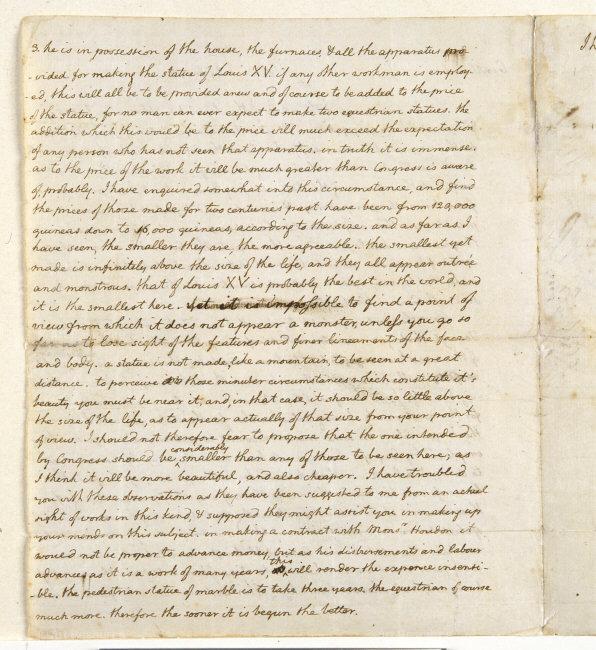 3. he is in possession of the house, the furnaces, & all the apparatus pro
-vided for making the statue of Louis XV. if any other workman is employ-
-ed, this will all be to be provided anew and of course to be added to the price
of the statue, for no man can ever expect to make two equestrian statues. the
addition which this would be to the price will much exceed the expectation
of any person who has not seen that apparatus. in truth it is immense.
as to the price of the work it will be much greater than Congress is aware
of, probably. I have inquired somewhat into this circumstance, and find
the prices of those made for two centuries past have been from 120,000
guineas down to 16,000 guineas, according to the size. and as far as I
have seen, the smaller they are, the more agreeable. the smallest yet
made is infinitely above the size of the life, and they all appear outrée
and monstrous. that of Louis XV is probably the best in the world, and
it is the smallest here. yet it is impossible to find a point of
view from which it does not appear a monster, unless you go so
far as to lose sight of the features and finer lineaments of the face
and body. a statue is not made, like a mountain, to be seen at a great
distance. to perceive those minuter circumstances which constitute it's
beauty you must be near it, and, in that case, it should be so little above
the size of the life, as to appear actually of that size from your point
of view. I should not therefore fear to propose that the one intended
by Congress should be considerably smaller than any of those to be seen here; as
I think it will be more beautiful, and also cheaper. I have troubled
you with these observations as they have been suggested to me from an actual
sight of works in this kind, & supposed they might assist you in making up
your minds on this subject. in making a contract with Monsr. Houdon it
would not be proper to advance money, but as his disbursements and labour
advance, as it is a work of many years, this will render the expence insensi-
-ble. the pedestrian statue of marble is to take three years. the equestrian of course
much more. therefore the sooner it is begun the better.